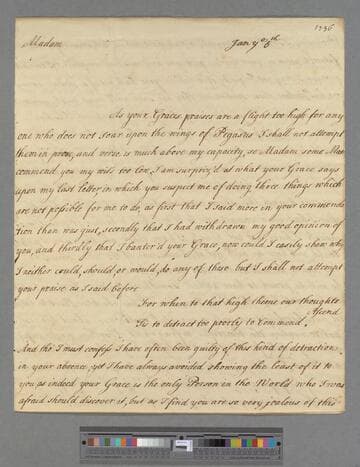 1736
Madam Jan ye 6th
As your Graces praises are a flight too high for any
one who does not soar upon the wings of Pegasus I shall not attempt
them in prose, and verse is much above my capacity, so Madam some Man
commend you my wits too low, I am surpriz'd at what your Grace says
upon my last letter in which you suspect me of doing three things which
are not possible for me to do, as first that I said more in your commenda
tion than was just, secondly that I had withdrawn my good opinion of
you, and thirdly that I banter'd your Grace, now could I easily shew why
I neither could, should or would, do any of these but I shall not attempt
your praise as I said before
For when to that high theme our thoughts
Ascend
Tis to detract too poorly to Commend.
And tho I must confess I have often been guilty of this kind of detraction
in your absence, yet I have always avoided showing the least of it to
you as indeed your Grace is the only Person in the World who I was
afraid should discover it, but as I find you are so very jealous of this